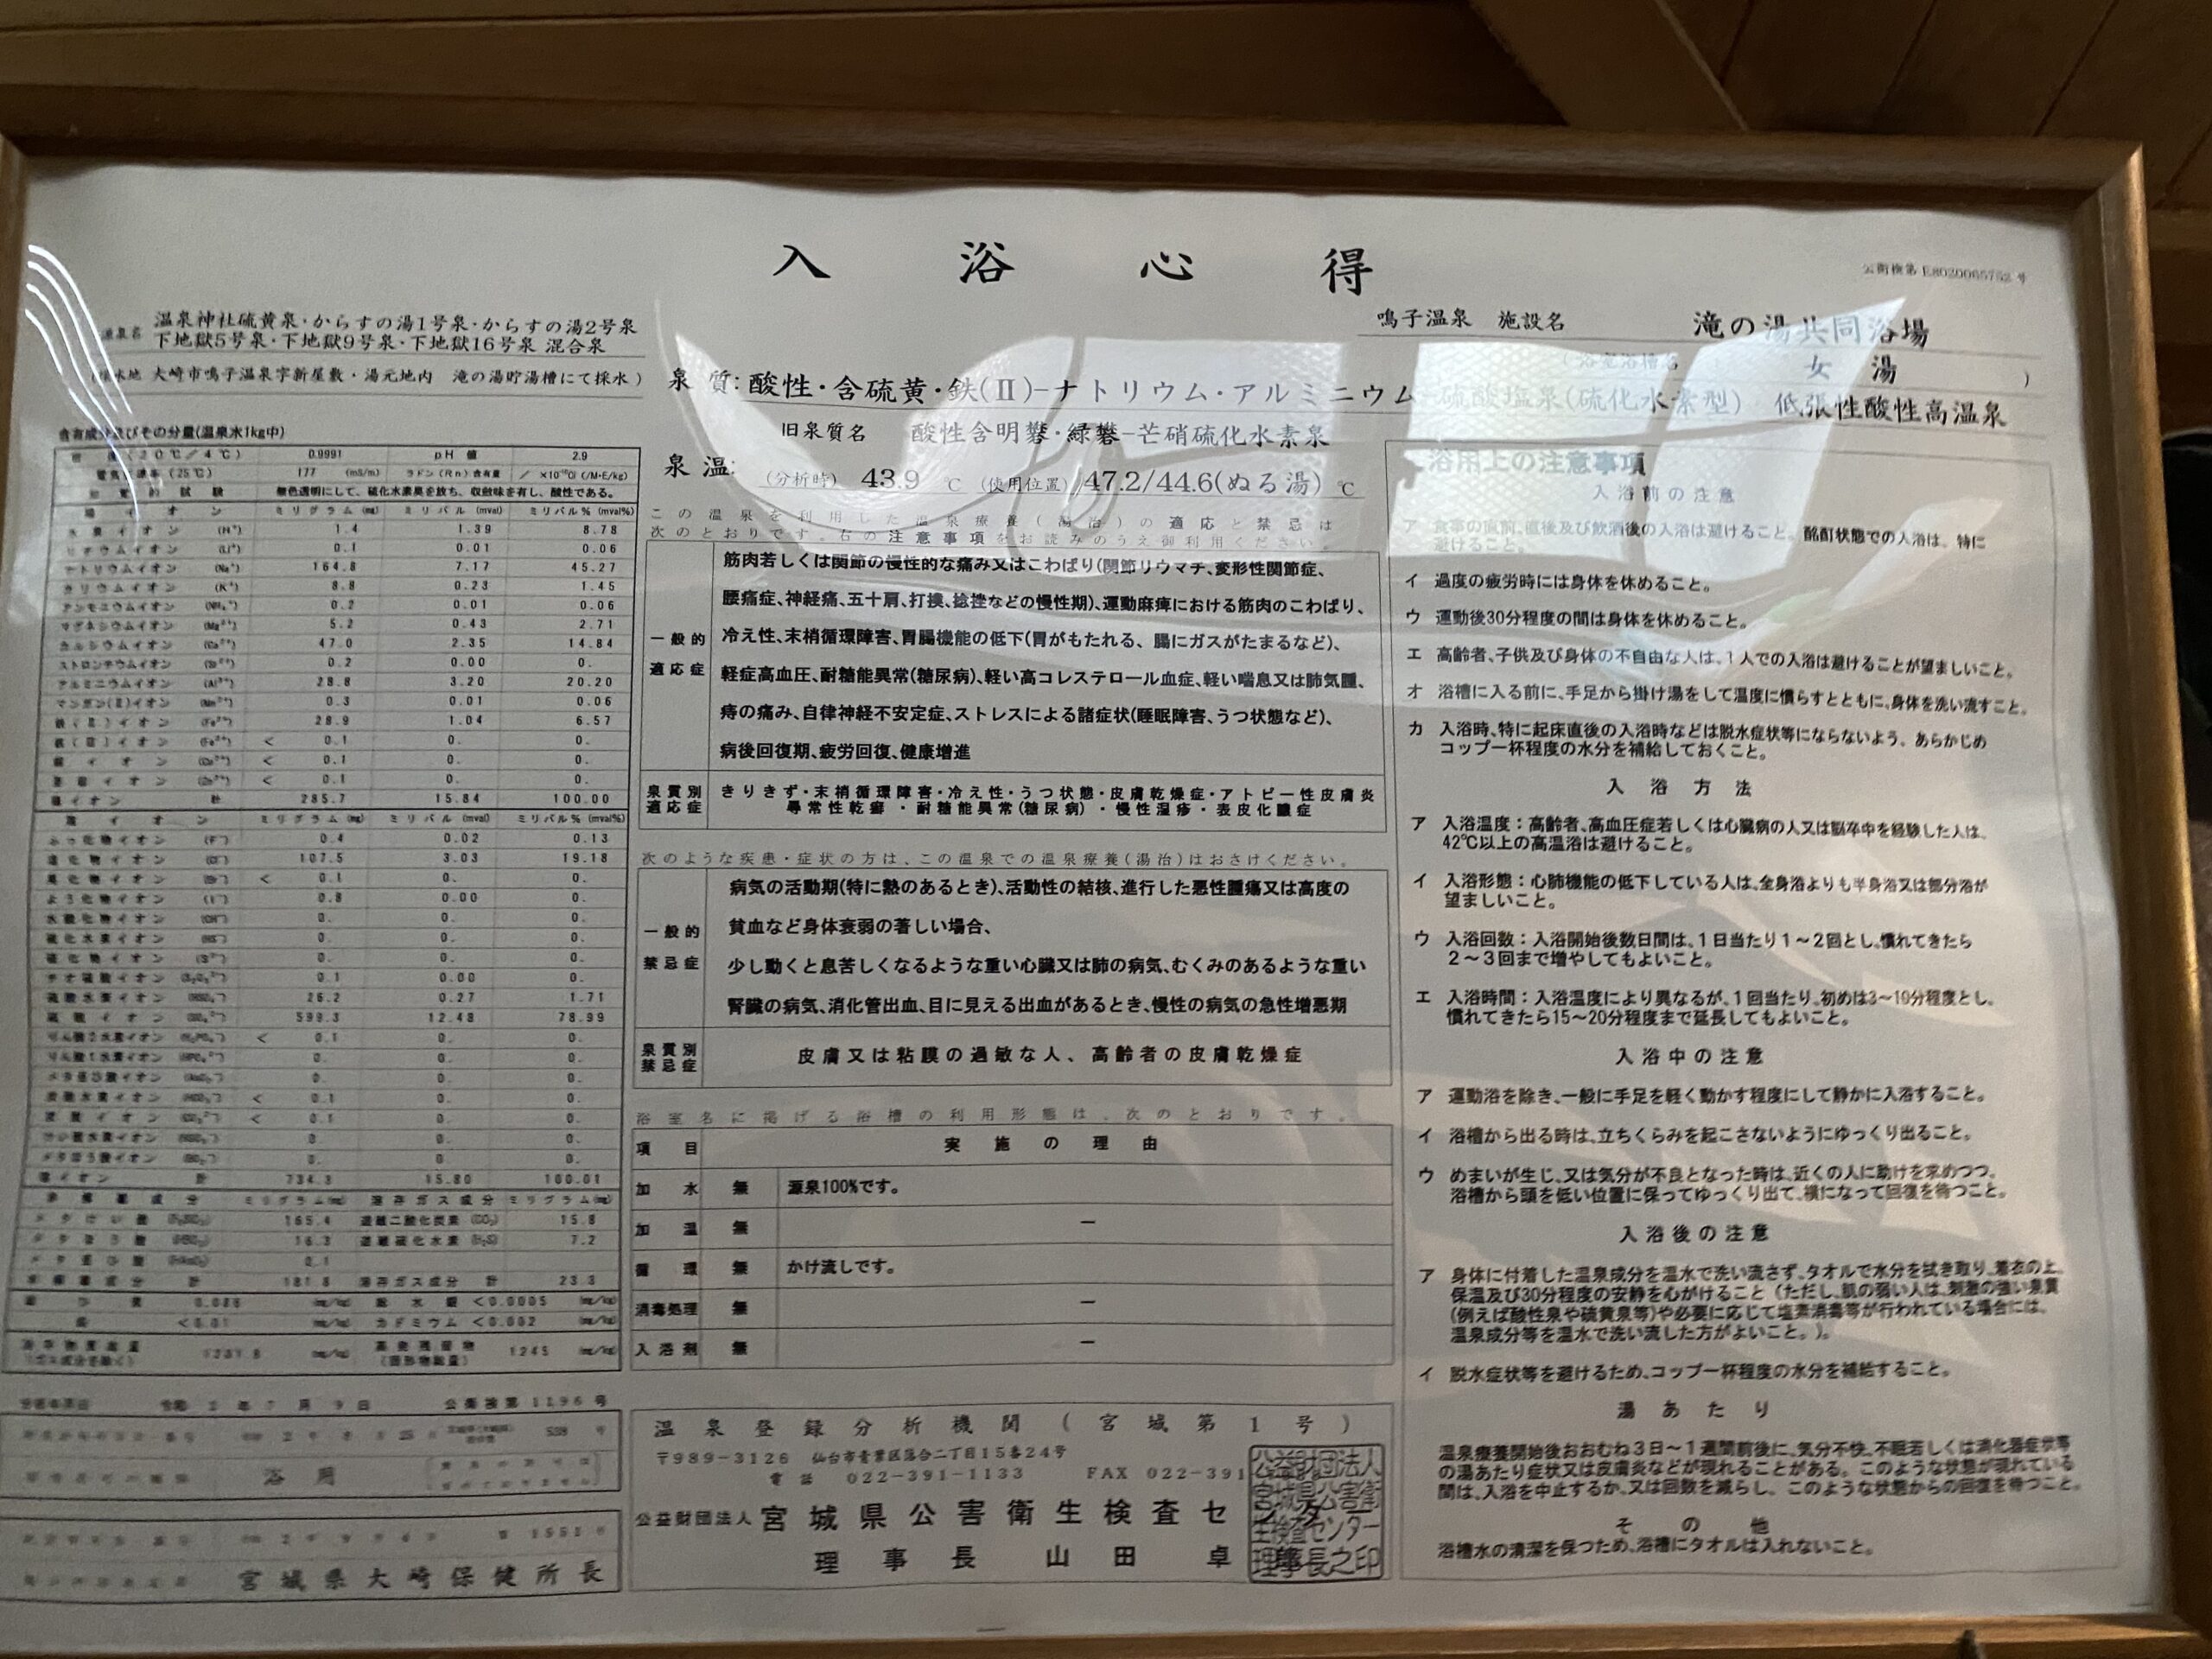 入浴心得
公衛検第E8020065752号
温泉神社硫黄泉・からすの湯1号泉・からすの湯2号泉
下地獄5号泉・下地獄9号泉・下地獄16号泉 混合泉
大崎市鳴子温泉字新屋敷・湯元地内 滝の湯貯湯槽にて採水)
鳴子温泉 施設名 滝の湯共同浴場
女湯 )
泉質:酸性・含硫黄・鉄(Ⅱ)-ナトリウム・アルミニウム 硫酸塩泉(硫化水素型) 低張性酸性高温泉
旧泉質名 酸性含明礬・緑礬-芒硝硫化水素泉
泉温: (分析時) 43.9 ℃ (使用位置) 47.2/44.6(ぬる湯) ℃
含有成分及びその分量(温泉水1kg中)
0.9991 pH 値 2.9
電気伝導率(25℃) 177 (mS/m) ラドン(Rn)含有量
無色透明にして、硫化水素臭を放ち、収斂味を有し、酸性である。
ミリグラム(mg) ミリバル(mval) ミリバル%(mval%)
水素イオン (H⁺) 1.4 1.39 8.78
リチウムイオン (Li⁺) 0.1 0.01 0.06
ナトリウムイオン (Na⁺) 164.8 7.17 45.27
カリウムイオン (K⁺) 8.8 0.23 1.45
アンモニウムイオン (NH₄⁺) 0.2 0.01 0.06
マグネシウムイオン (Mg²⁺) 5.2 0.43 2.71
カルシウムイオン (Ca²⁺) 47.0 2.35 14.84
ストロンチウムイオン (Sr²⁺) 0.2 0.00 0.
アルミニウムイオン (Al³⁺) 28.8 3.20 20.20
マンガン(Ⅱ)イオン (Mn²⁺) 0.3 0.01 0.06
鉄(Ⅱ)イオン (Fe²⁺) 28.9 1.04 6.57
鉄(Ⅲ)イオン (Fe³⁺) < 0.1 0. 0.
銅イオン (Cu²⁺) < 0.1 0. 0.
亜鉛イオン (Zn²⁺) < 0.1 0. 0.
陽イオン 計 285.7 15.84 100.00
陰イオン ミリグラム(mg) ミリバル(mval) ミリバル%(mval%)
ふっ化物イオン (F⁻) 0.4 0.02 0.13
塩化物イオン (Cl⁻) 107.5 3.03 19.18
臭化物イオン (Br⁻) < 0.1 0. 0.
よう化物イオン (I⁻) 0.8 0.00 0.
水酸化物イオン (OH⁻) 0. 0. 0.
硫化水素イオン (HS⁻) 0. 0. 0.
硫化物イオン (S²⁻) 0. 0. 0.
チオ硫酸イオン (S₂O₃²⁻) 0.1 0.00 0.
硫酸水素イオン (HSO₄⁻) 26.2 0.27 1.71
硫酸イオン (SO₄²⁻) 599.3 12.48 78.99
りん酸2水素イオン (H₂PO₄⁻) < 0.1 0. 0.
りん酸1水素イオン (HPO₄²⁻) 0. 0. 0.
メタ亜ひ酸イオン 0. 0. 0.
炭酸水素イオン (HCO₃⁻) < 0.1 0. 0.
炭酸イオン (CO₃²⁻) < 0.1 0. 0.
0. 0. 0.
メタほう酸イオン (BO₂⁻) 0. 0. 0.
陰イオン 計 734.3 15.80 100.01
非解離成分 ミリグラム(mg) 溶存ガス成分 ミリグラム(mg)
メタけい酸 (H₂SiO₃) 165.4 遊離二酸化炭素 (CO₂) 15.8
メタほう酸 (HBO₂) 16.3 遊離硫化水素 (H₂S) 7.2
メタ亜ひ酸 (HAsO₂) 0.1
非解離成分 計 181.8 溶存ガス成分 計 23.3
(mg/kg) 総水銀 <0.0005 (mg/kg)
<0.01 (mg/kg) カドミウム <0.002 (mg/kg)
(ガス成分を除く) (mg/kg) 蒸発残留物 (固形物総量) 1245 (mg/kg)
年7月9日 公衛検第1196号
浴用
1551号
宮城県大崎保健所長
この温泉を利用した温泉療養(湯治)の適応と禁忌は
次のとおりです。右の注意事項をお読みのうえ御利用ください。
一般的適応症
筋肉若しくは関節の慢性的な痛み又はこわばり(関節リウマチ、変形性関節症、
腰痛症、神経痛、五十肩、打撲、捻挫などの慢性期)、運動麻痺における筋肉のこわばり、
冷え性、末梢循環障害、胃腸機能の低下(胃がもたれる、腸にガスがたまるなど)、
軽症高血圧、耐糖能異常(糖尿病)、軽い高コレステロール血症、軽い喘息又は肺気腫、
痔の痛み、自律神経不安定症、ストレスによる諸症状(睡眠障害、うつ状態など)、
病後回復期、疲労回復、健康増進
泉質別適応症
きりきず・末梢循環障害・冷え性・うつ状態・皮膚乾燥症・アトピー性皮膚炎
尋常性乾癬・耐糖能異常(糖尿病)・慢性湿疹・表皮化膿症
次のような疾患・症状の方は、この温泉での温泉療養(湯治)はおさけください。
一般的禁忌症
病気の活動期(特に熱のあるとき)、活動性の結核、進行した悪性腫瘍又は高度の
貧血など身体衰弱の著しい場合、
少し動くと息苦しくなるような重い心臓又は肺の病気、むくみのあるような重い
腎臓の病気、消化管出血、目に見える出血があるとき、慢性の病気の急性増悪期
泉質別禁忌症
皮膚又は粘膜の過敏な人、高齢者の皮膚乾燥症
浴室名に掲げる浴槽の利用形態は、次のとおりです。
項目 実施の理由
加水 無 源泉100%です。
加温 無 ー
循環 無 かけ流しです。
消毒処理 無 ー
入浴剤 無 ー
温泉登録分析機関(宮城第1号)
〒989-3126 仙台市青葉区落合二丁目15番24号
電話 022-391-1133 FAX 022-391
公益財団法人 宮城県公害衛生検査センター
理事長 山田卓
公益財団法人
宮城県公害衛
生検査センター
理事長之印
浴用上の注意事項
入浴前の注意
ア 食事の直前、直後及び飲酒後の入浴は避けること。酩酊状態での入浴は、特に
避けること。
イ 過度の疲労時には身体を休めること。
ウ 運動後30分程度の間は身体を休めること。
エ 高齢者、子供及び身体の不自由な人は、1人での入浴は避けることが望ましいこと。
オ 浴槽に入る前に、手足から掛け湯をして温度に慣らすとともに、身体を洗い流すこと。
カ 入浴時、特に起床直後の入浴時などは脱水症状等にならないよう、あらかじめ
コップ一杯程度の水分を補給しておくこと。
入浴方法
ア 入浴温度：高齢者、高血圧症若しくは心臓病の人又は脳卒中を経験した人は、
42℃以上の高温浴は避けること。
イ 入浴形態：心肺機能の低下している人は、全身浴よりも半身浴又は部分浴が
望ましいこと。
ウ 入浴回数：入浴開始後数日間は、1日当たり1～2回とし、慣れてきたら
2～3回まで増やしてもよいこと。
エ 入浴時間：入浴温度により異なるが、1回当たり、初めは3～10分程度とし、
慣れてきたら15～20分程度まで延長してもよいこと。
入浴中の注意
ア 運動浴を除き、一般に手足を軽く動かす程度にして静かに入浴すること。
イ 浴槽から出る時は、立ちくらみを起こさないようにゆっくり出ること。
ウ めまいが生じ、又は気分が不良となった時は、近くの人に助けを求めつつ、
浴槽から頭を低い位置に保ってゆっくり出て、横になって回復を待つこと。
入浴後の注意
ア 身体に付着した温泉成分を温水で洗い流さず、タオルで水分を拭き取り、着衣の上、
保温及び30分程度の安静を心がけること(ただし、肌の弱い人は、刺激の強い泉質
(例えば酸性泉や硫黄泉等)や必要に応じて塩素消毒等が行われている場合には、
温泉成分等を温水で洗い流した方がよいこと。)。
イ 脱水症状等を避けるため、コップ一杯程度の水分を補給すること。
湯あたり
温泉療養開始後おおむね3日～1週間前後に、気分不快、不眠若しくは消化器症状等
の湯あたり症状又は皮膚炎などが現れることがある。このような状態が現れている
間は、入浴を中止するか、又は回数を減らし、このような状態からの回復を待つこと。
その他
浴槽水の清潔を保つため、浴槽にタオルは入れないこと。